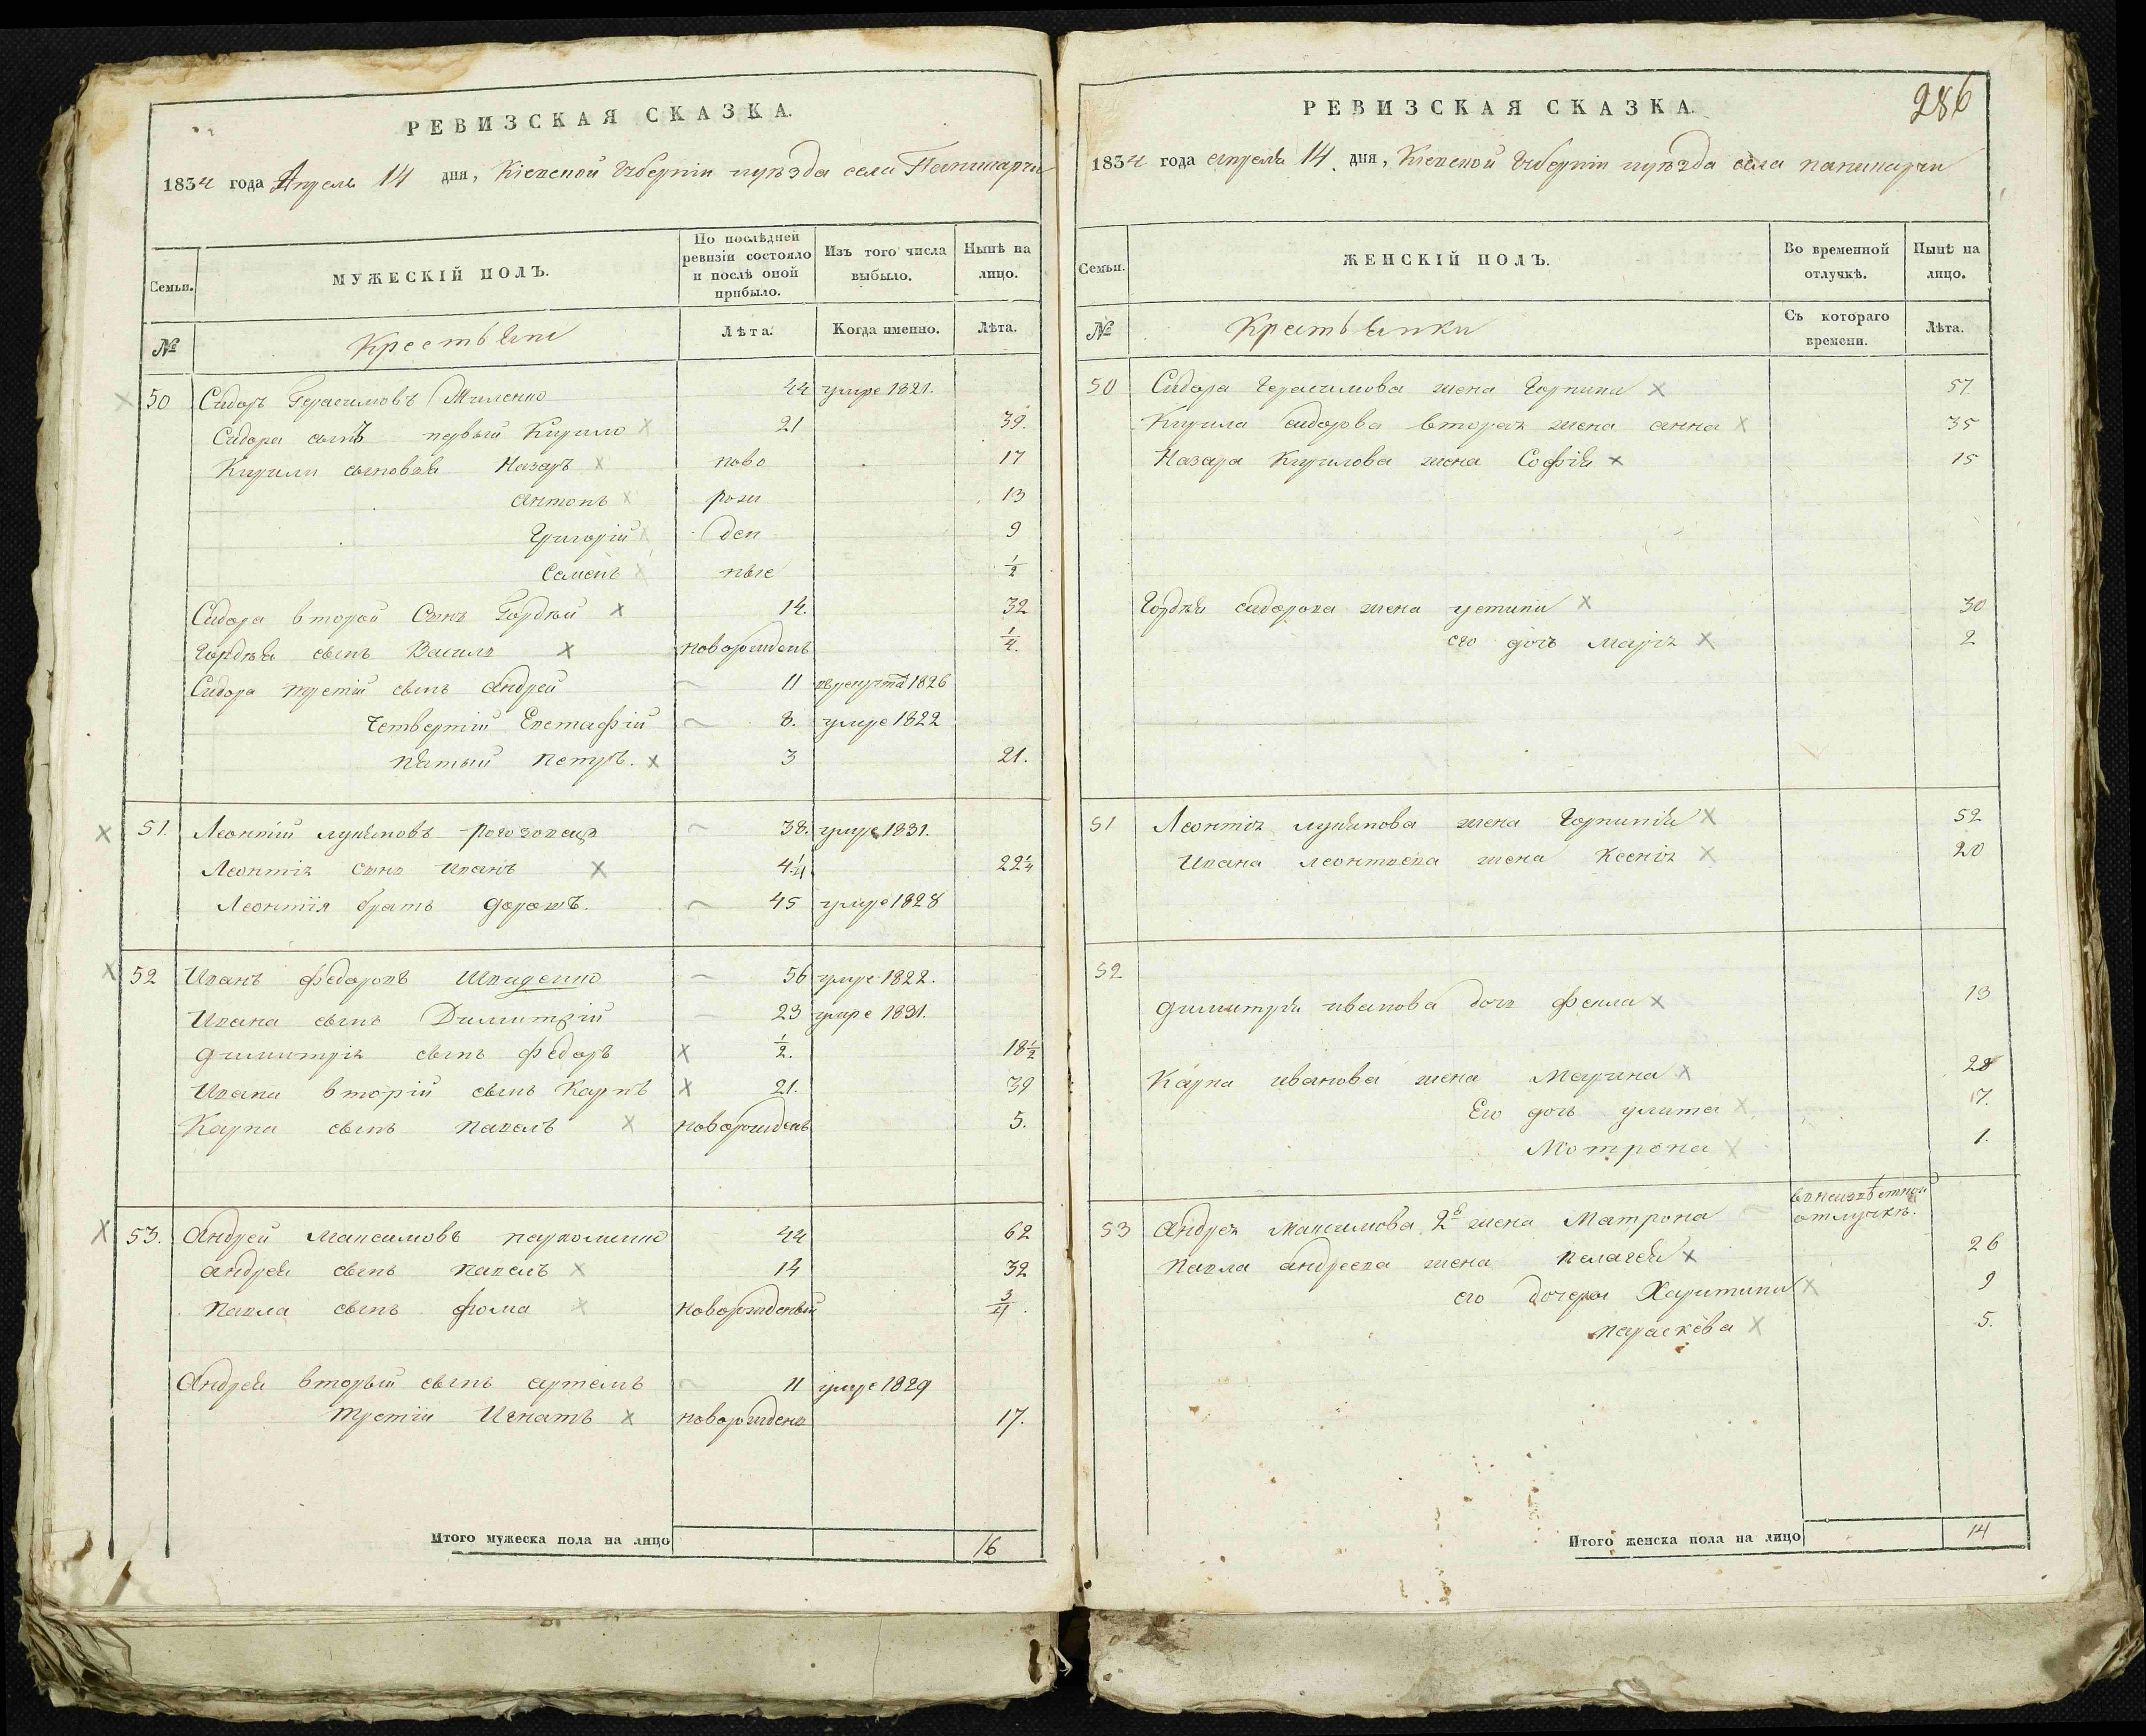 РЕВИЗСКАЯ СКАЗКА.
1834 года Апреля 14 дня, Кіевской Губерніи и уѣзда села Паникарчи
Семьи.
МУЖЕСКІЙ ПОЛЪ.
По послѣдней ревизіи состояло и послѣ оной прибыло.
Изъ того числа выбыло.
Нынѣ на лицо.
№
Крестьяне
Лѣта.
Когда именно.
Лѣта.
50 Сидоръ Герасимовъ 44 умре 1821.
Сидора сынъ первый Кирило 21 39.
Кирили сыновья Назаръ ново 17
Антонъ рож 13
Григорій ден 9
Семенъ ные 1/2
Сидора второй Сынъ Гордѣй 14. 32
Гордѣя сынъ Василь новорожденъ 1/4.
Сидора третій сынъ андрей 11 врекрута 1826
Четвертій Евстафій 8. умре 1822
пятый петръ. 3 21.
51. Леонтій лукяновъ роговонецъ 38. умре 1831.
Леонтія сынъ иванъ 4 1/4 22 1/4
Леонтія братъ дорошъ. 45 умре 1828
52 Иванъ федоровъ Шпиденко 56 умре 1822.
Ивана сынъ Димитрій 23 умре 1831.
димитрія сынъ федоръ 1/2. 18 1/2
Ивана вторій сынъ Карпъ 21. 39
Карпа сынъ павелъ новорожденъ 5.
53. Андрей Максимовъ пархоменко 44 62
андрея сынъ павелъ 14 32
павла сынъ фома новорожденый 3/4.
Андрея вторый сынъ артемъ 11 умре 1829
третій Игнатъ новорожденъ 17.
Итого мужеска пола на лицо 16
286
РЕВИЗСКАЯ СКАЗКА.
1834 года апреля 14 дня, Кіевской Губерніи и уѣзда села паникарчи
Семьи.
ЖЕНСКІЙ ПОЛЪ.
Во временной отлучкѣ.
Нынѣ на лицо.
№
Крестьянки
Съ котораго времени.
Лѣта.
50 Сидора Герасимова жена Горпина 57
Кирила сидорова вторая жена анна 35
Назара Кирилова жена Софія 15
Гордѣя сидорова жена устиня 30
его дочь марія 2
51 Леонтія лукянова жена Горпинія 52
Ивана леонтьева жена Ксенія 20
52
димитрія иванова дочь фекла 13
Карпа иванова жена Марина 28
Его дочь улита 7.
Мотрона 1.
53 Андрея максимова 2я жена Матрона в неизвѣстной отлучкѣ.
Павла андреева жена пелагея 26
его дочери Харитина 9
параскева 5.
Итого женска пола на лицо 14